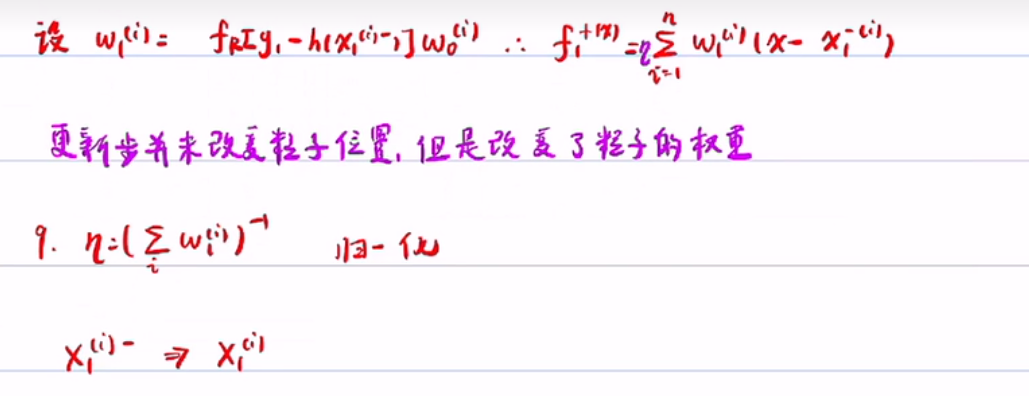 设 w₁⁽ⁱ⁾ = f_R[y₁ - h(x₁⁽ⁱ⁾⁻)] w₀⁽ⁱ⁾ ∴ f₁⁺(x) = η Σᵢ₌₁ⁿ w₁⁽ⁱ⁾ (x - x₁⁻⁽ⁱ⁾)
更新步并未改变粒子位置, 但是改变了粒子的权重
9. η = (Σᵢ w₁⁽ⁱ⁾)⁻¹ 归一化
x₁⁽ⁱ⁾⁻ ⇒ x₁⁽ⁱ⁾